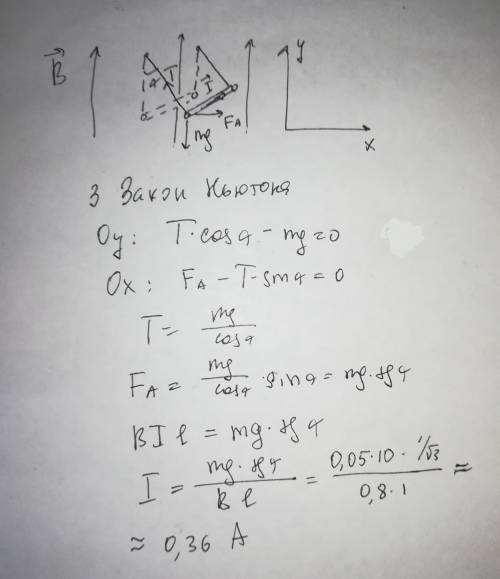 B y
α T I
α F_A
mg x
3 Закон Ньютона
Oy: T·cosα - mg = 0
Ox: F_A - T·sinα = 0
T = mg/cosα
F_A = mg/cosα · sinα = mg·tgα
BIl = mg·tgα
I = mg·tgα/Bl = 0,05·10·1/√3/0,8·1 ≈
≈ 0,36 A